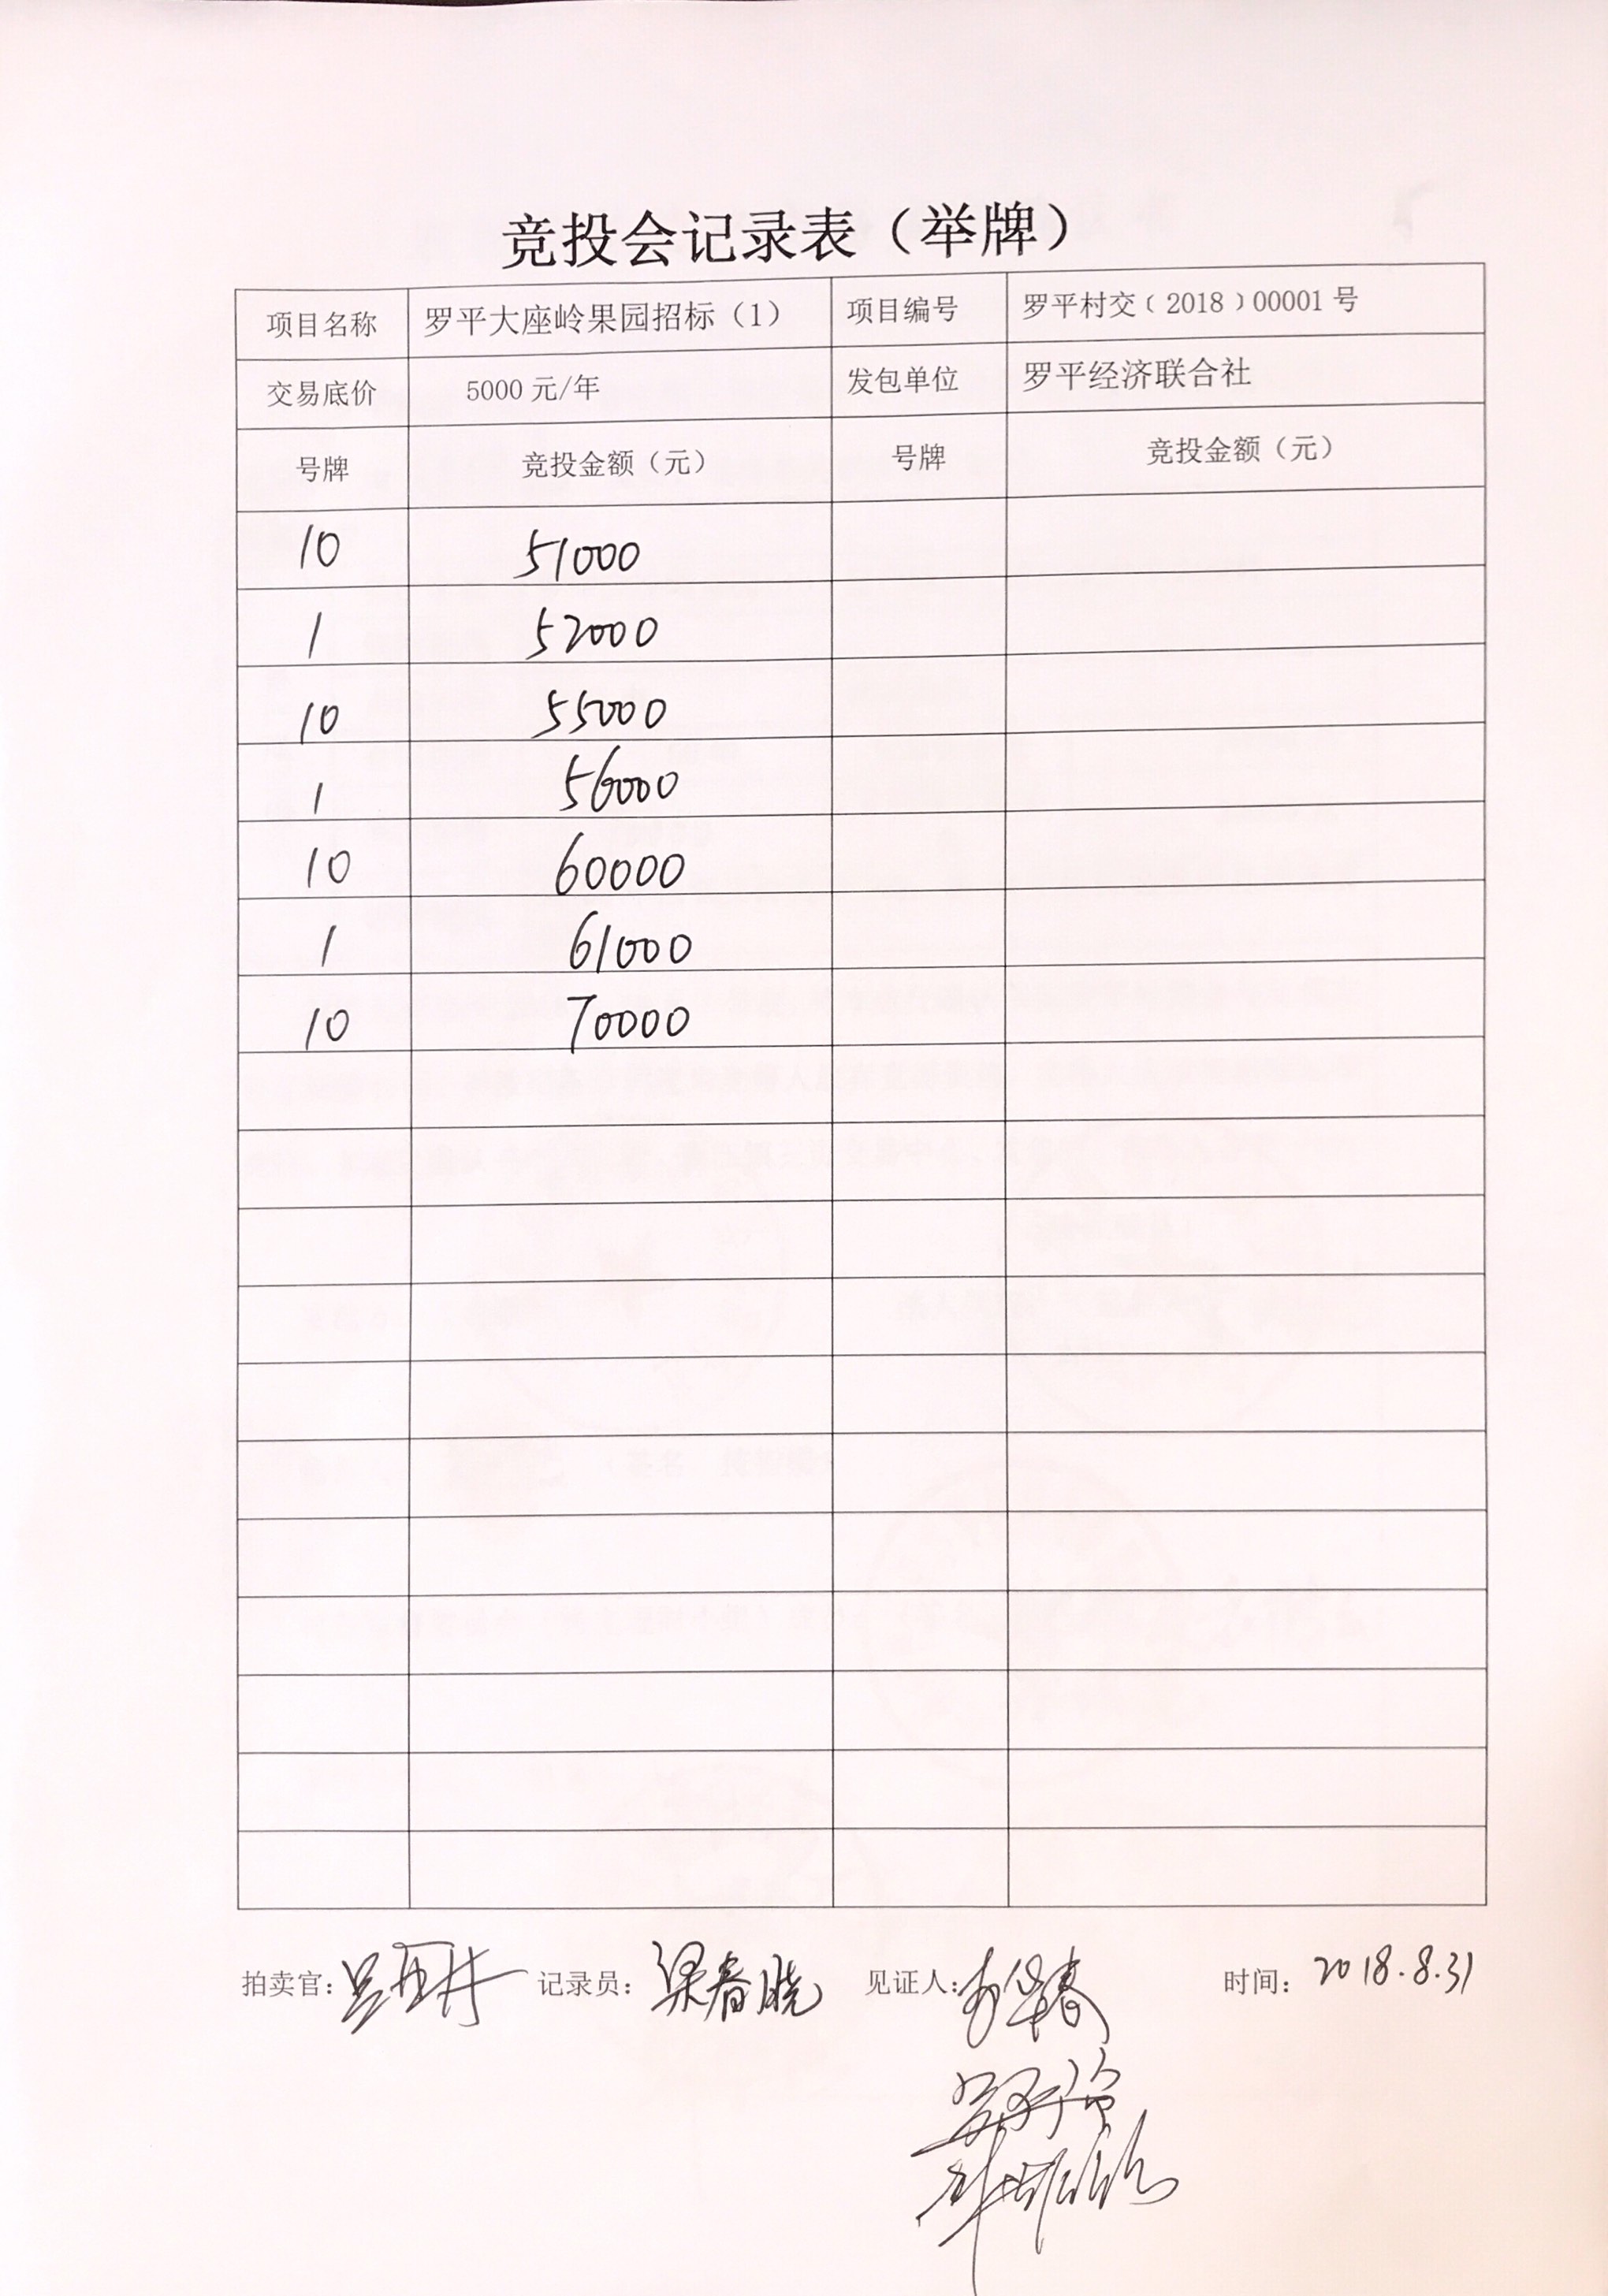 竞投会记录表（举牌）
项目名称 罗平大座岭果园招标（1） 项目编号 罗平村交﹝2018﹞00001 号
交易底价 5000 元/年 发包单位 罗平经济联合社
号牌 竞投金额（元） 号牌 竞投金额（元）
10 51000
1 52000
10 55000
1 56000
10 60000
1 61000
10 70000
拍卖官： 记录员：梁春晓 见证人： 时间：2018.8.31